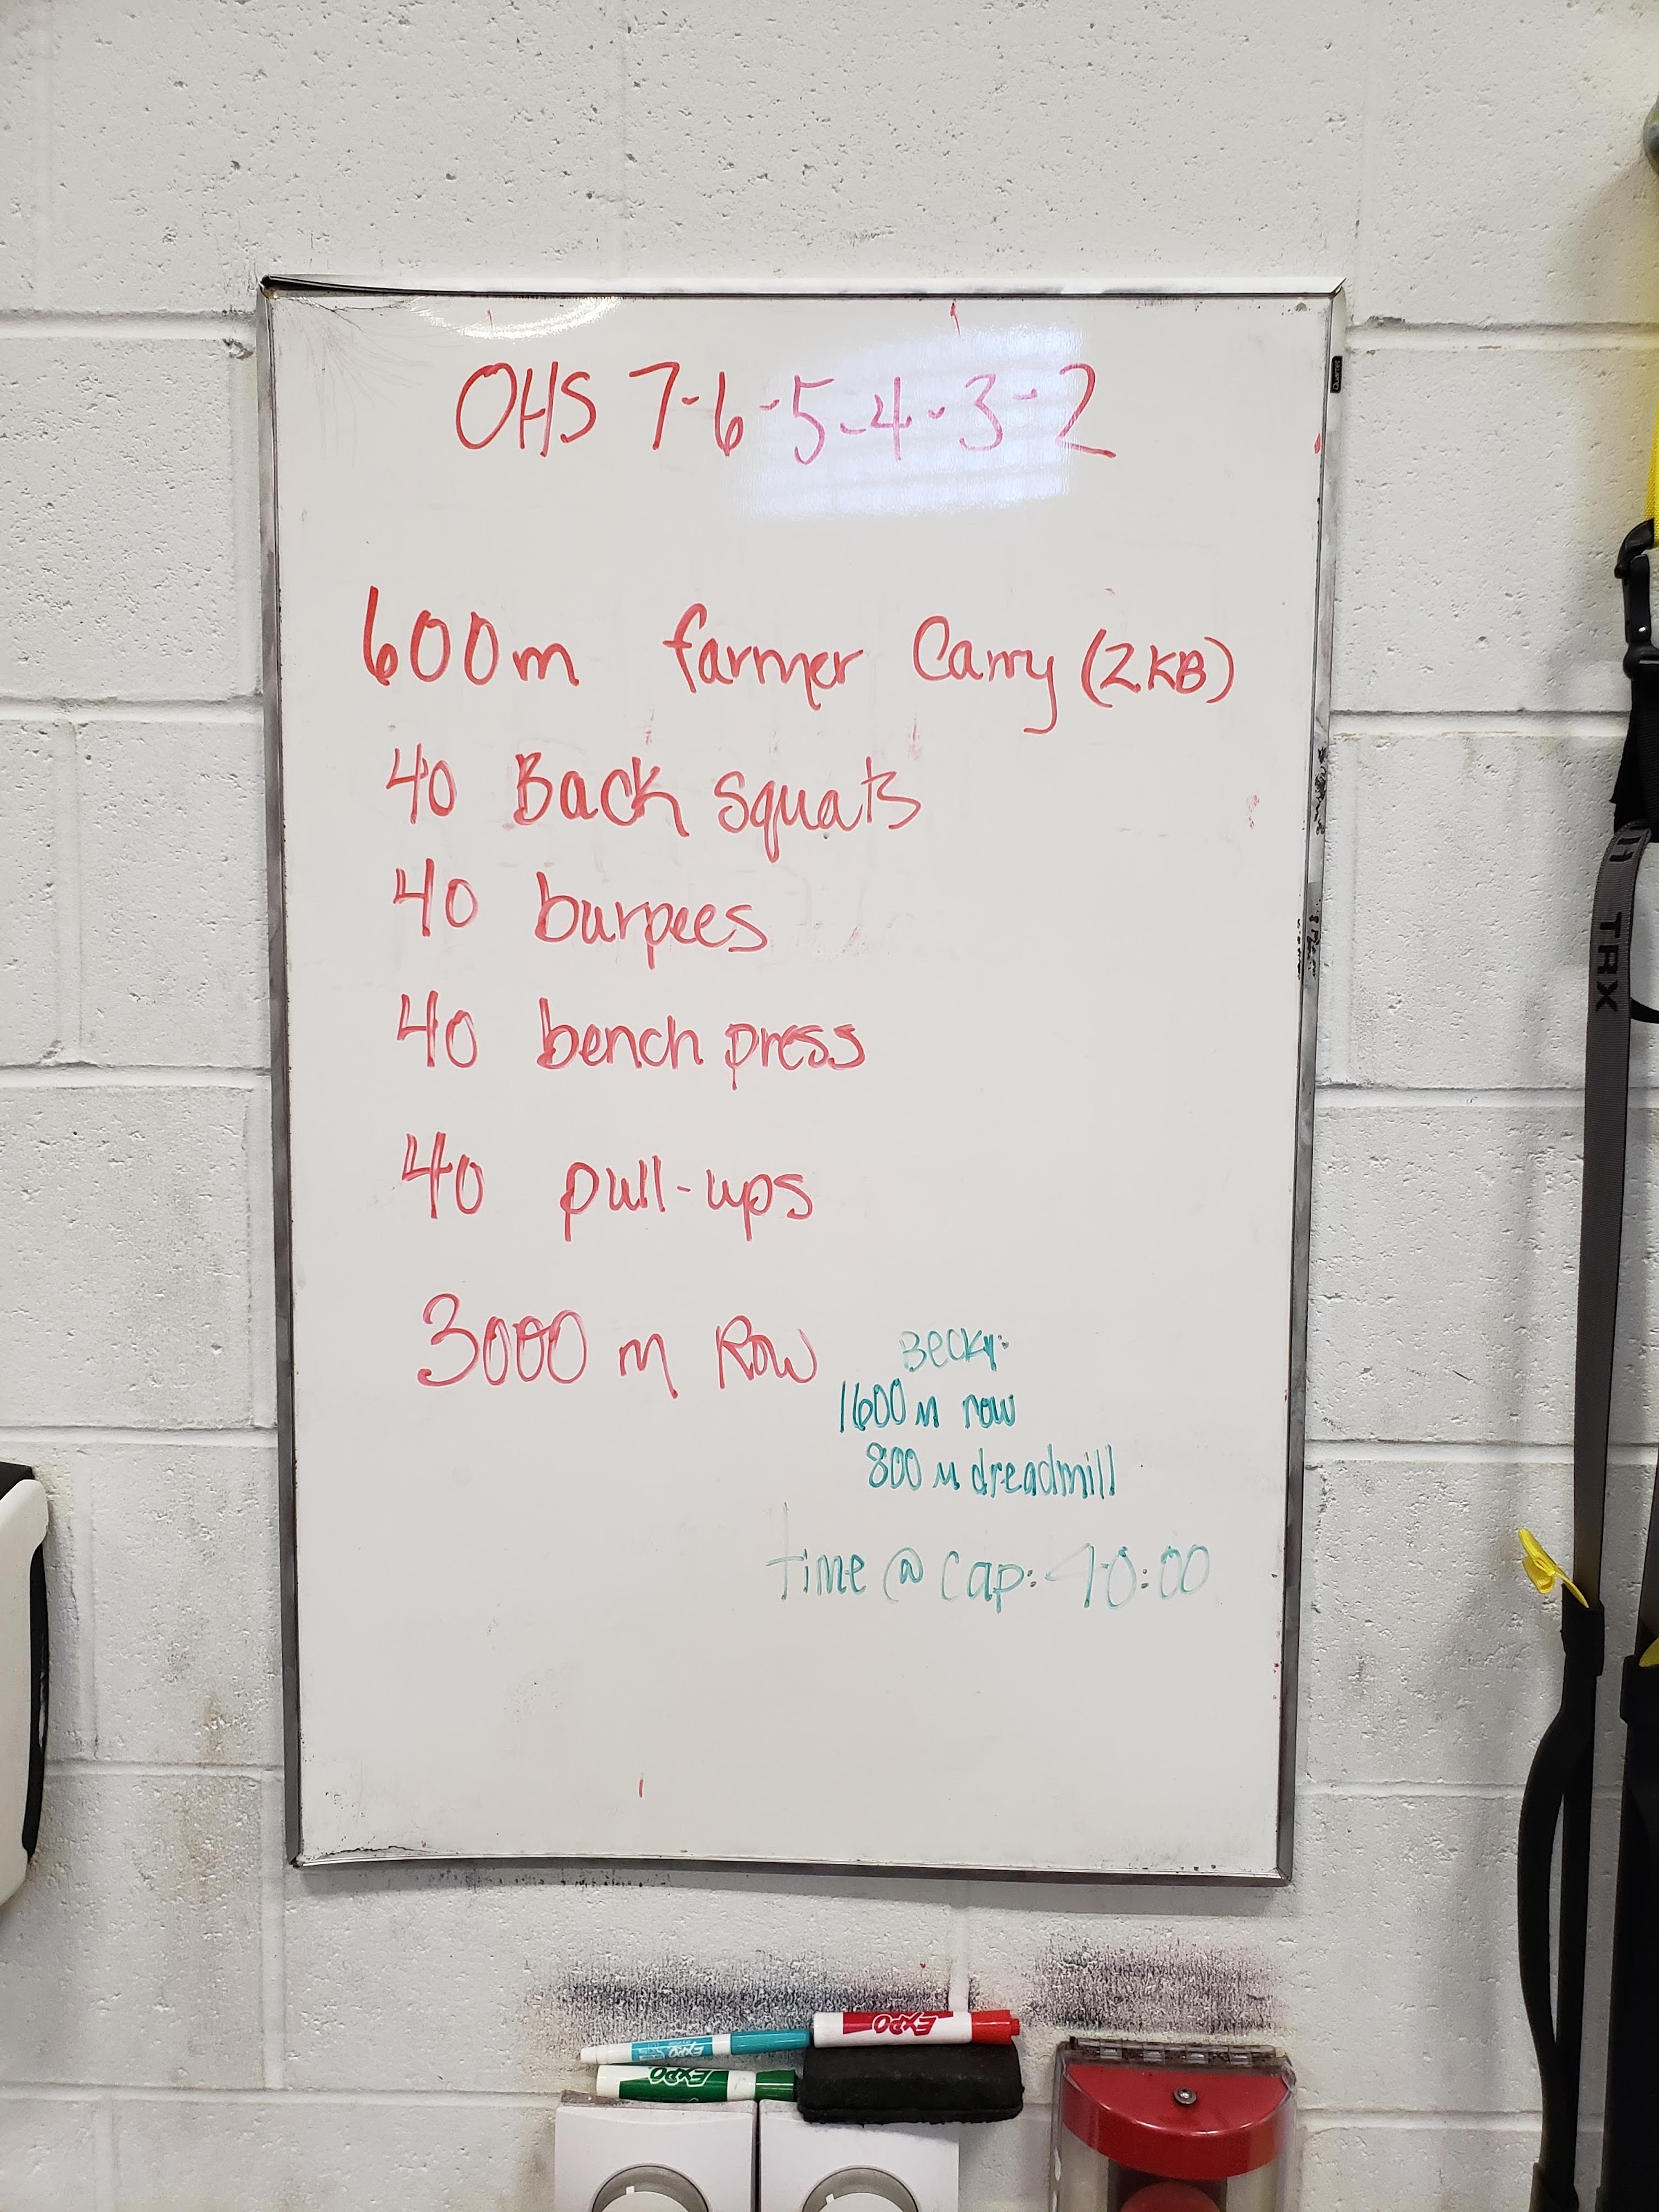 OHS 7-6-5-4-3-2
600m farmer Carry (2KB)
40 Back squats
40 burpees
40 bench press
40 pull-ups
3000 m Row
Becky:
1600 m row
800 m dreadmill
time @ cap: 40:00
Quartet
TRX
EXPO
EXPO
EXPO